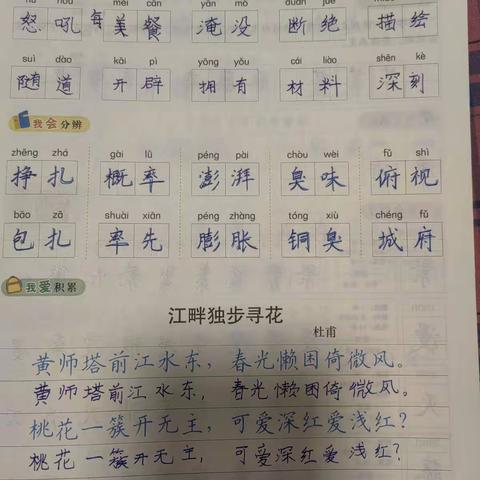 měi cān yān mò duàn jué
怒吼 每 美餐 淹没 断绝 描绘
suì dào kāi pì yōng yǒu cái liào shēn kè
隧道 开辟 拥有 材料 深刻
我会分辨
zhēng zhá gài lǜ péng pài chòu wèi fǔ shì
挣扎 概率 澎湃 臭味 俯视
bāo zā shuài xiān péng zhàng tóng xiù chéng fǔ
包扎 率先 膨胀 铜臭 城府
我爱积累
江畔独步寻花
杜甫
黄师塔前江水东，春光懒困倚微风。
黄师塔前江水东，春光懒困倚微风。
桃花一簇开无主，可爱深红爱浅红？
桃花一簇开无主，可爱深红爱浅红？